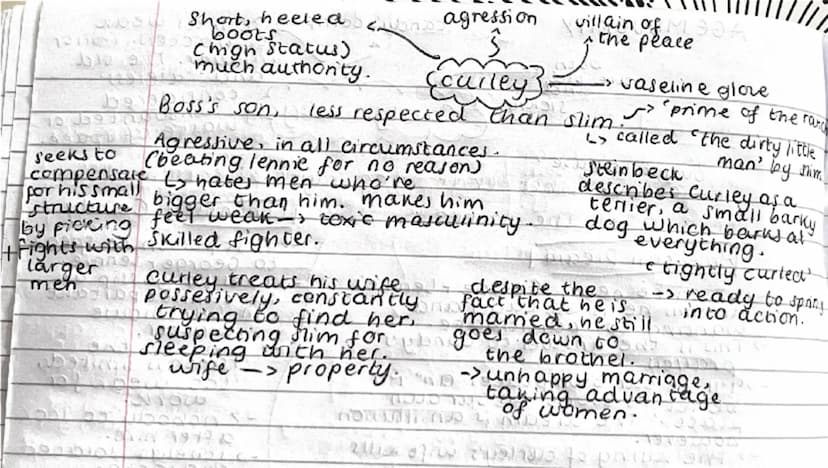 Short, heeled
boots
(high status)
much authority.
agression
villain of
the peace
curley
vaseline glove
Boss's son, less respected than slim.
'prime of the
called "the dirty little
man' by slim
Agressive, in all circumstances.
(beating lennie for no reason)
hates men who're
bigger than him. makes him
feel weak → toxic masculinity.
skilled fighter.
seeks to
compensate
for his small
structure
by picking
+ fights with
larger
men
Steinbeck
describes Curley as a
terrier, a small barky
dog which barks at
everything.
'tightly curled'
→ ready to spring
into action.
Curley treats his wife
possesively, constantly
trying to find her,
suspecting slim for
sleeping with her.
wife → property.
despite the
fact that he is
married, he still
goes down to
the brothel.
→ unhappy marriage,
taking advantage
of women.